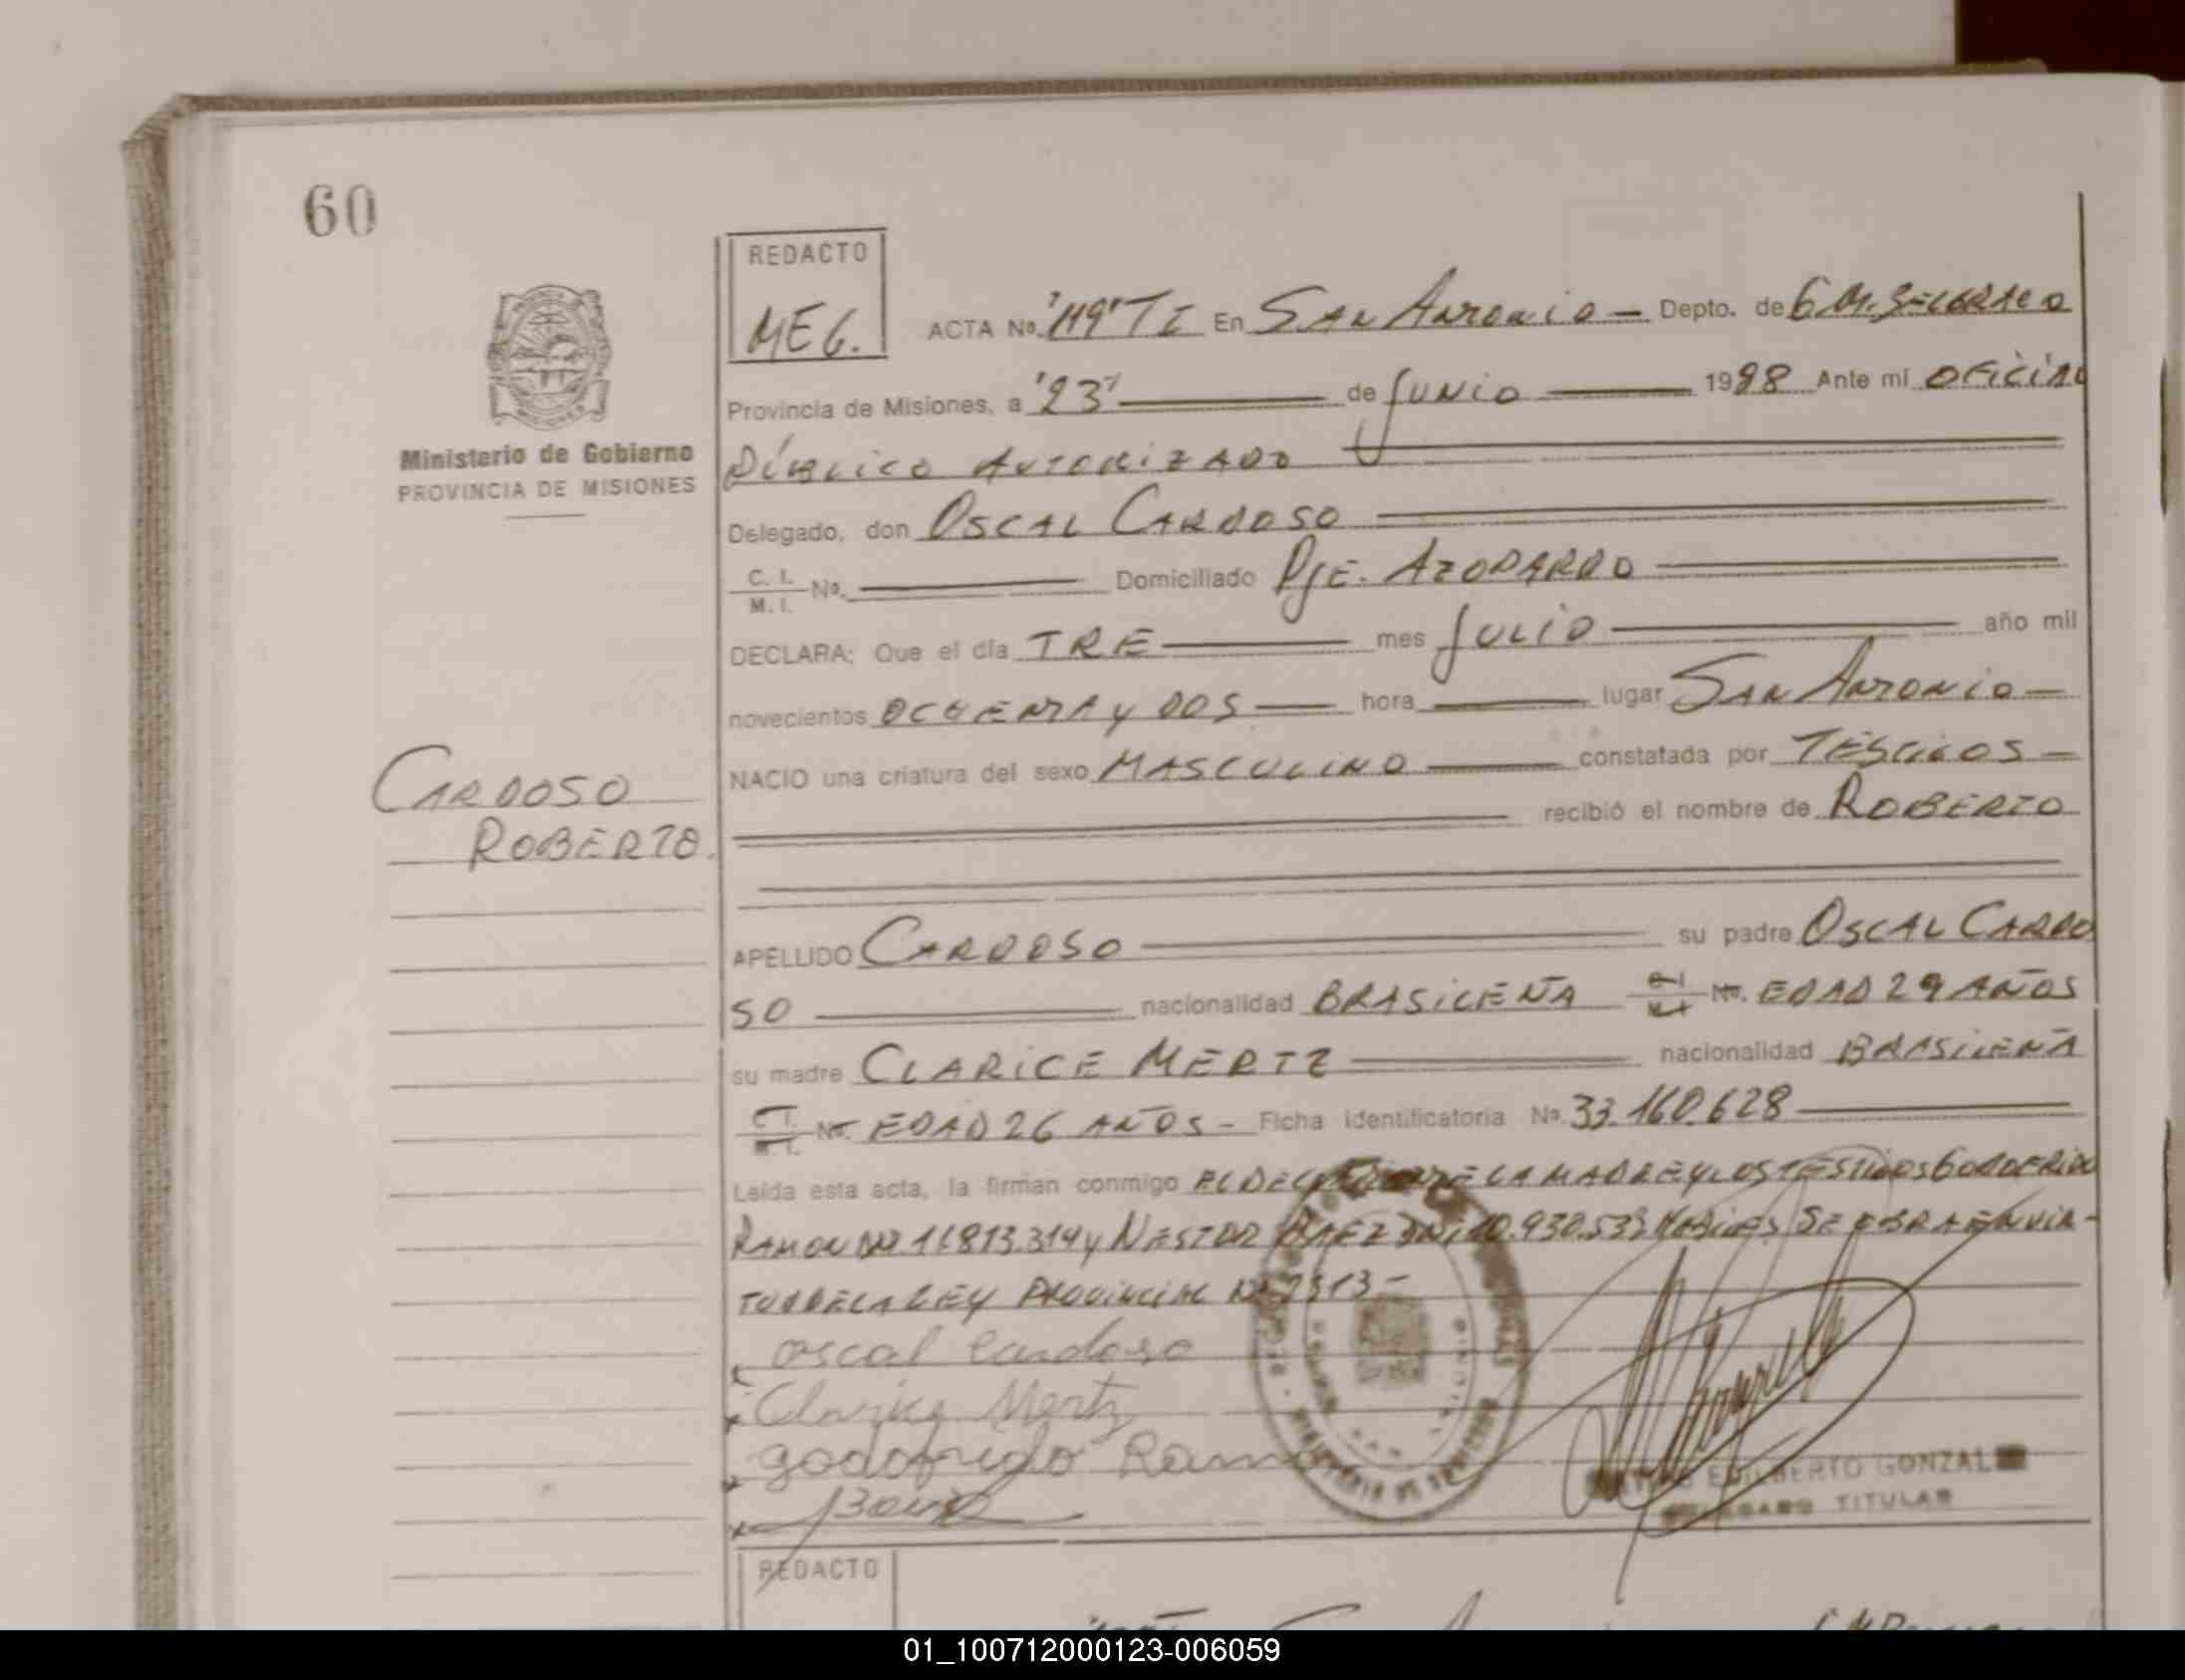 60
REDACTO
MEG.
ACTA No. "119" TI En SAN ANTONIO — Depto. de G M. BELGRANO
Provincia de Misiones, a "23" de JUNIO 1988 Ante mí OFICIAL
Ministerio de Gobierno
PROVINCIA DE MISIONES
PÚBLICO AUTORIZADO
Delegado, don OSCAL CARDOSO
C. I. M. I. No. Domiciliado PJE. AZOPARDO
DECLARA: Que el día TRE mes JULIO año mil
novecientos OCHENTA y DOS — hora lugar SAN ANTONIO —
NACIO una criatura del sexo MASCULINO constatada por TESTIGOS —
CARDOSO
ROBERTO.
recibió el nombre de ROBERTO
APELLIDO CARDOSO su padre OSCAL CARDO
SO nacionalidad BRASILEÑA C.I. M.I. No. EDAD 29 AÑOS
su madre CLARICE MERTZ nacionalidad BRASILEÑA
C.I. M.I. No. EDAD 26 AÑOS — Ficha Identificatoria No. 33.160.628
Leída esta acta, la firman conmigo EL DECLARANTE LA MADRE y LOS TESTIGOS GODOFRIDO
RAMON DNI 11.813.314 y NESTOR BAEZ DNI 10.930.533 SE OBRA EN VIR-
TUD DE LA LEY PROVINCIAL No 2313 —
oscal Cardoso
Clarice Mertz
godofrido Ramon
EDILBERTO GONZAL
TITULAR
REDACTO
01_100712000123-006059